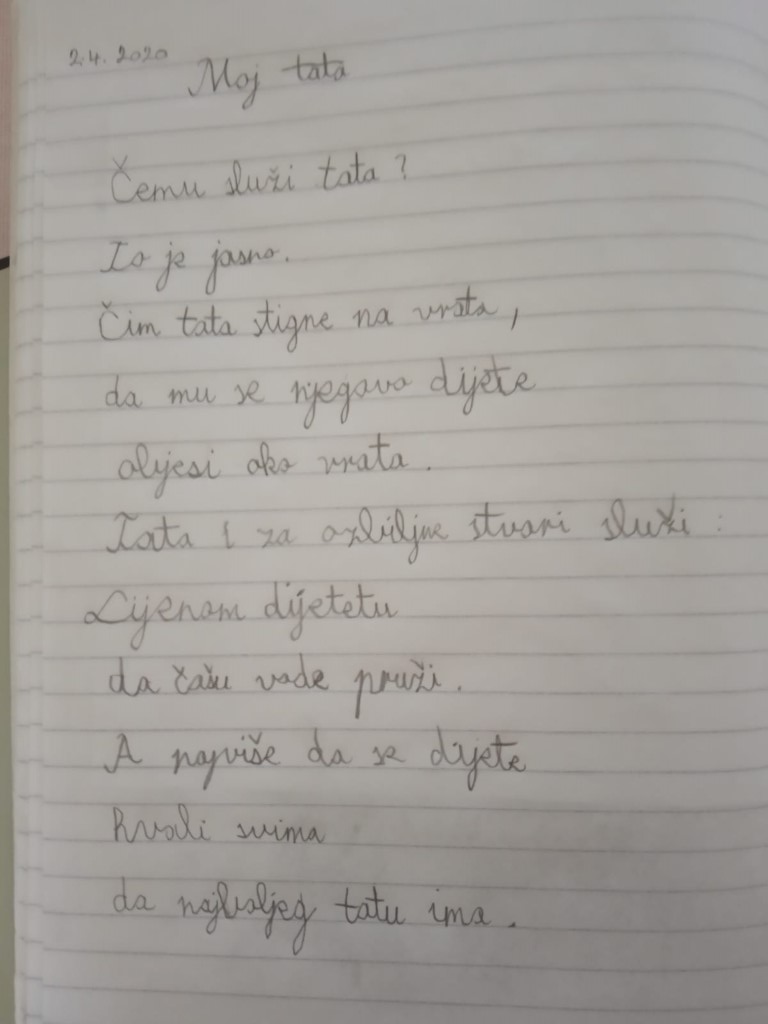 2.4. 2020
Moj tata
Čemu služi tata?
To je jasno.
Čim tata stigne na vrata,
da mu se njegovo dijete
objesi oko vrata.
Tata i za ozbiljne stvari služi:
Lijenom dijetetu
da čašu vode pruži.
A najviše da se dijete
hvali svima
da najboljeg tatu ima.